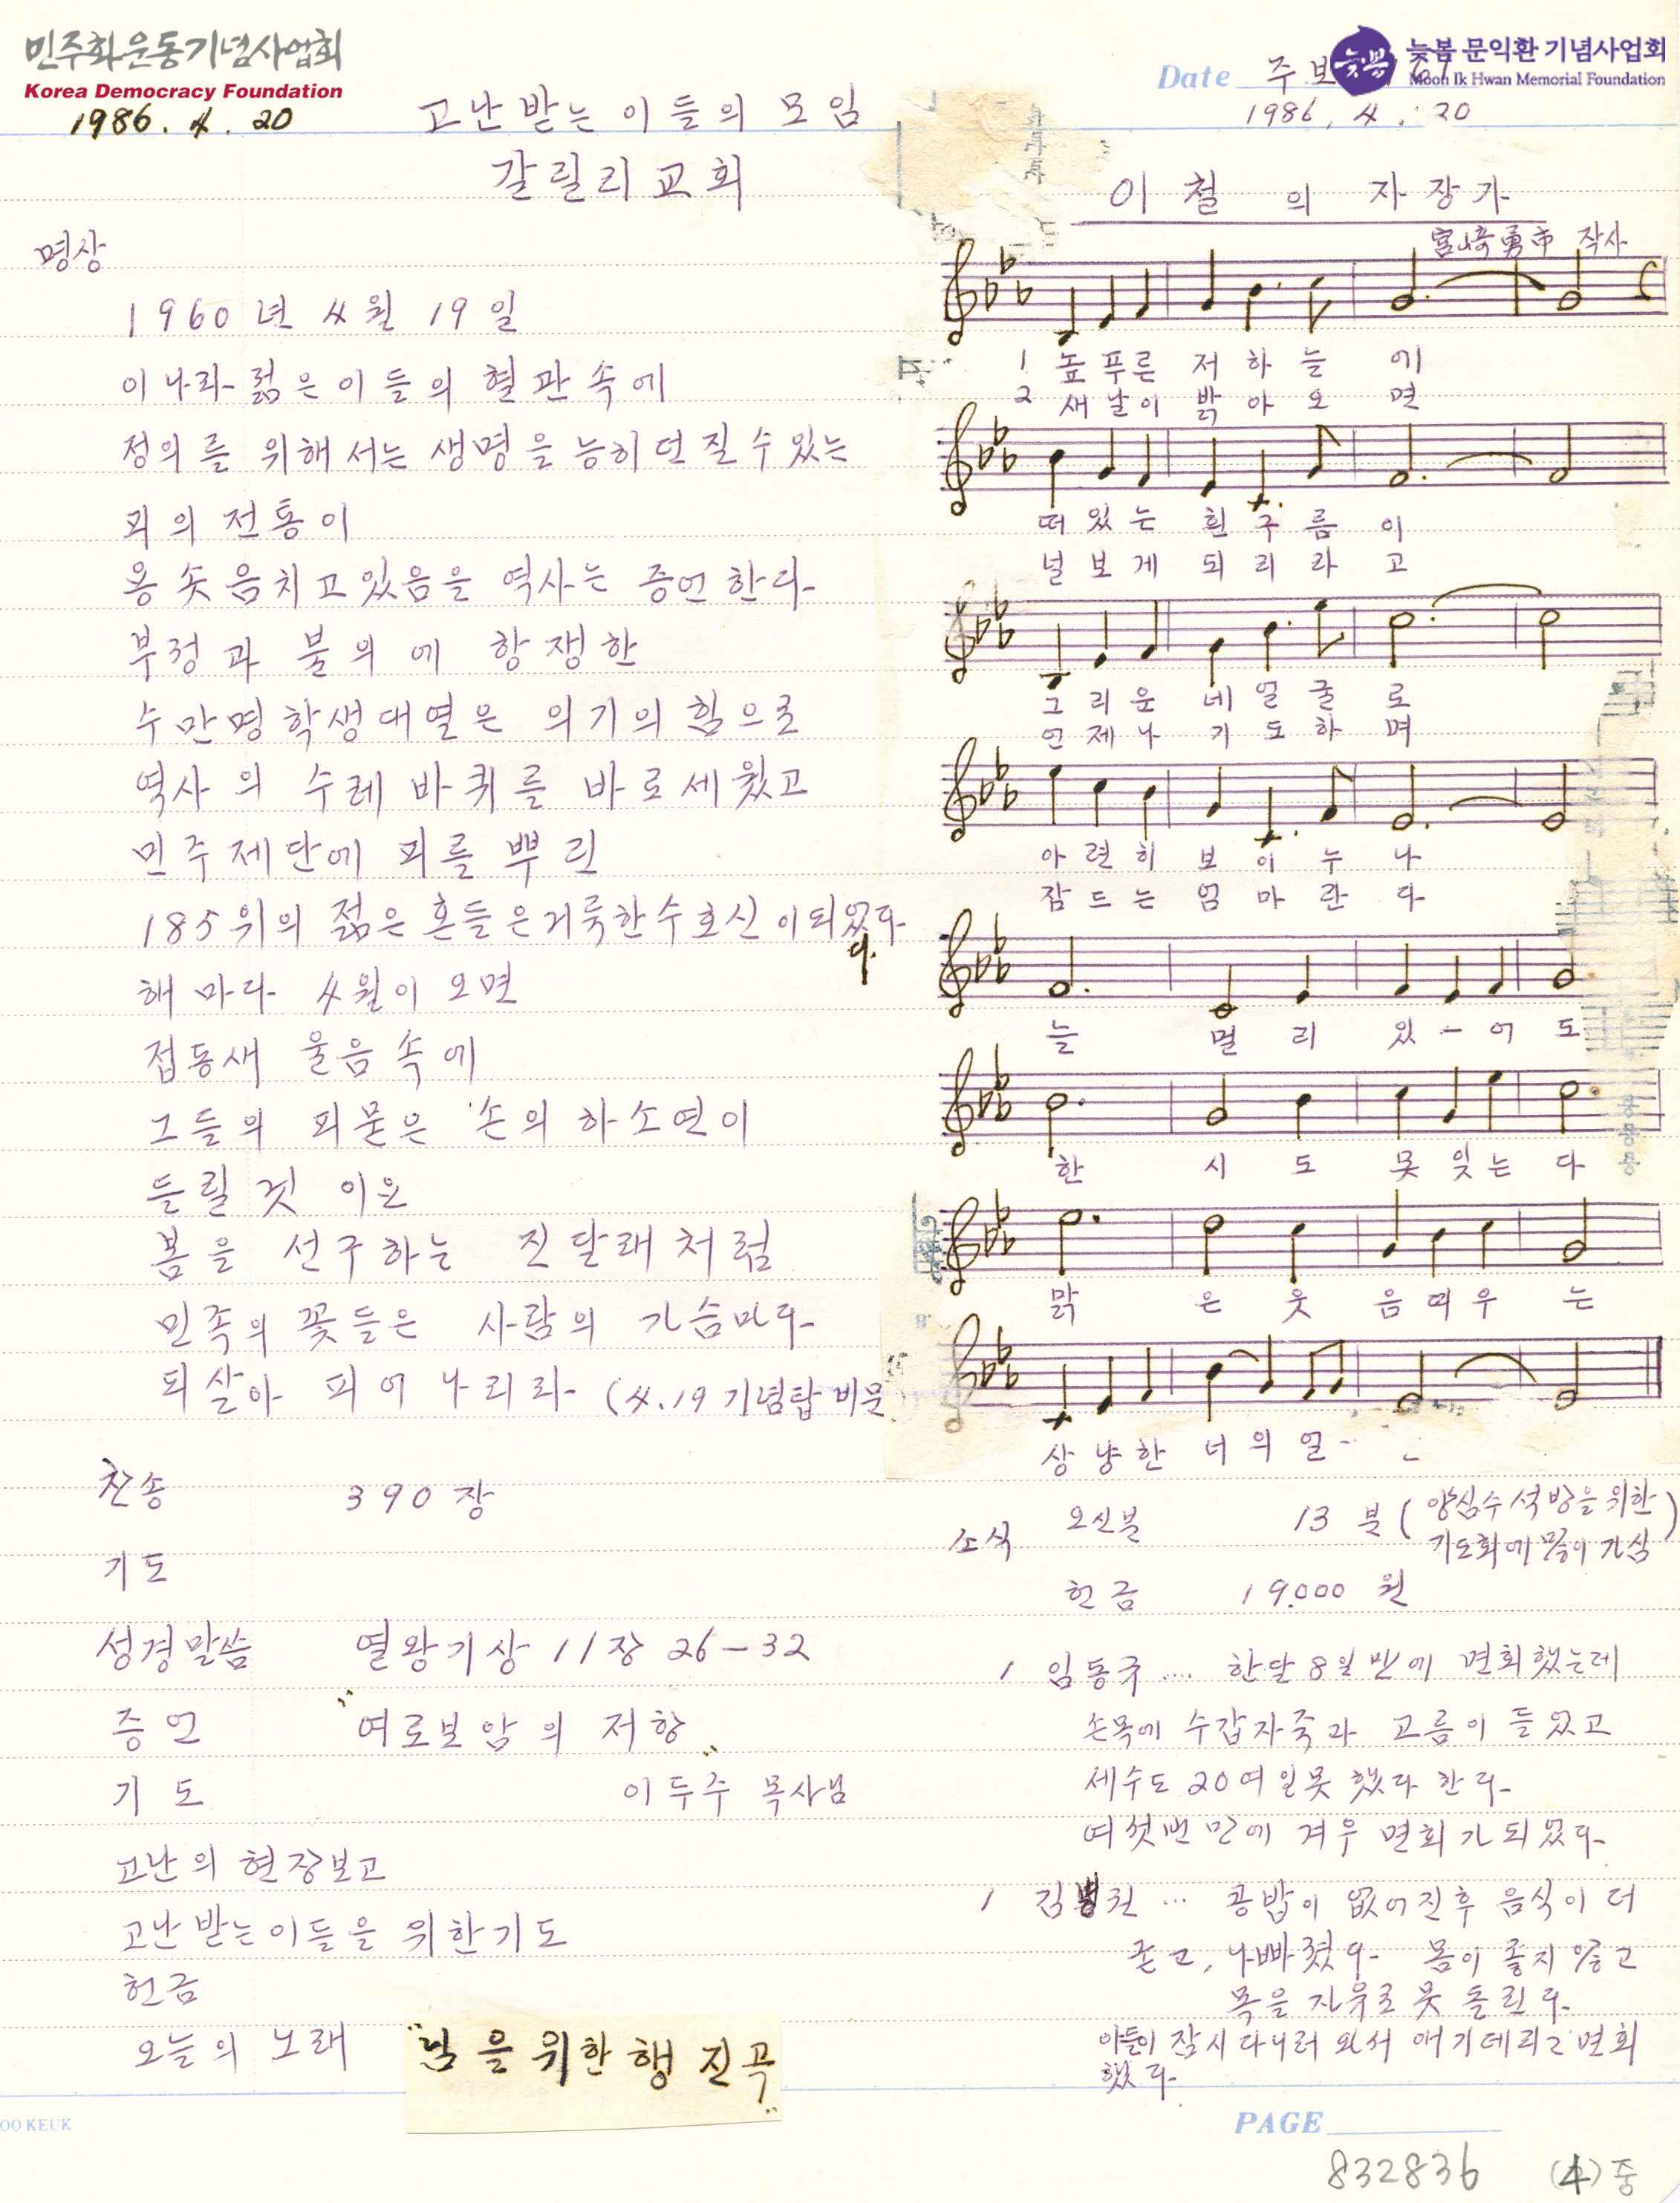 민주화운동기념사업회
Korea Democracy Foundation
1986. 4. 20
고난받는 이들의 모임
갈릴리교회
명상
1960년 4월 19일
이나라 젊은이들의 혈관속에
정의를 위해서는 생명을 능히 던질수있는
피의 전통이
용솟음치고있음을 역사는 증언한다
부정과 불의에 항쟁한
수만명 학생대열은 의기의 힘으로
역사의 수레바퀴를 바로세웠고
민주제단에 피를 뿌린
185위의 젊은 혼들은 거룩한수호신이되었다
다.
해마다 4월이 오면
접동새 울음속에
그들의 피묻은 손의 하소연이
들릴것이요
봄을 선구하는 진달래처럼
민족의 꽃들은 사람의 가슴마다
되살아 피어나리라 (4.19 기념탑 비문
찬송 390장
기도
성경말씀 열왕기상 11장 26-32
증언 "여로보암의 저항"
기도 이두수 목사님
고난의 현장보고
고난받는이들을 위한기도
헌금
오늘의 노래 "님을위한행진곡"
OO KEUK
늦봄 문익환 기념사업회
Moon Ik Hwan Memorial Foundation
늦봄
Date 주보
1986. 4. 20
이철의 자장가
宮崎勇市 작사
1 높푸른 저하늘에
2 새날이 밝아오면
떠있는 흰구름이
널보게 되리라고
그리운 네얼굴로
언제나 기도하며
아련히 보이누나
잠드는 엄마란다
늘 멀리 있-어도
한 시도 못잊는다
맑은 웃음띄우는
상냥한 너의얼-
소식 오신분 13분 (양심수석방을위한
기도회에 많이 가심)
헌금 19.000원
1 임동규 .... 한달 8일만에 면회했는데
손목에 수갑자죽과 고름이 들었고
세수도 20여일못했다 한다
여섯번만에 겨우 면회가되었다
1 김병권 ... 콩밥이 없어진후 음식이 더
줄고, 나빠졌다 몸이 좋지않고
목을 자유로 못돌린다
아들이 잠시 다니러 와서 애기데리고 면회
했다
PAGE
832836 (4)중